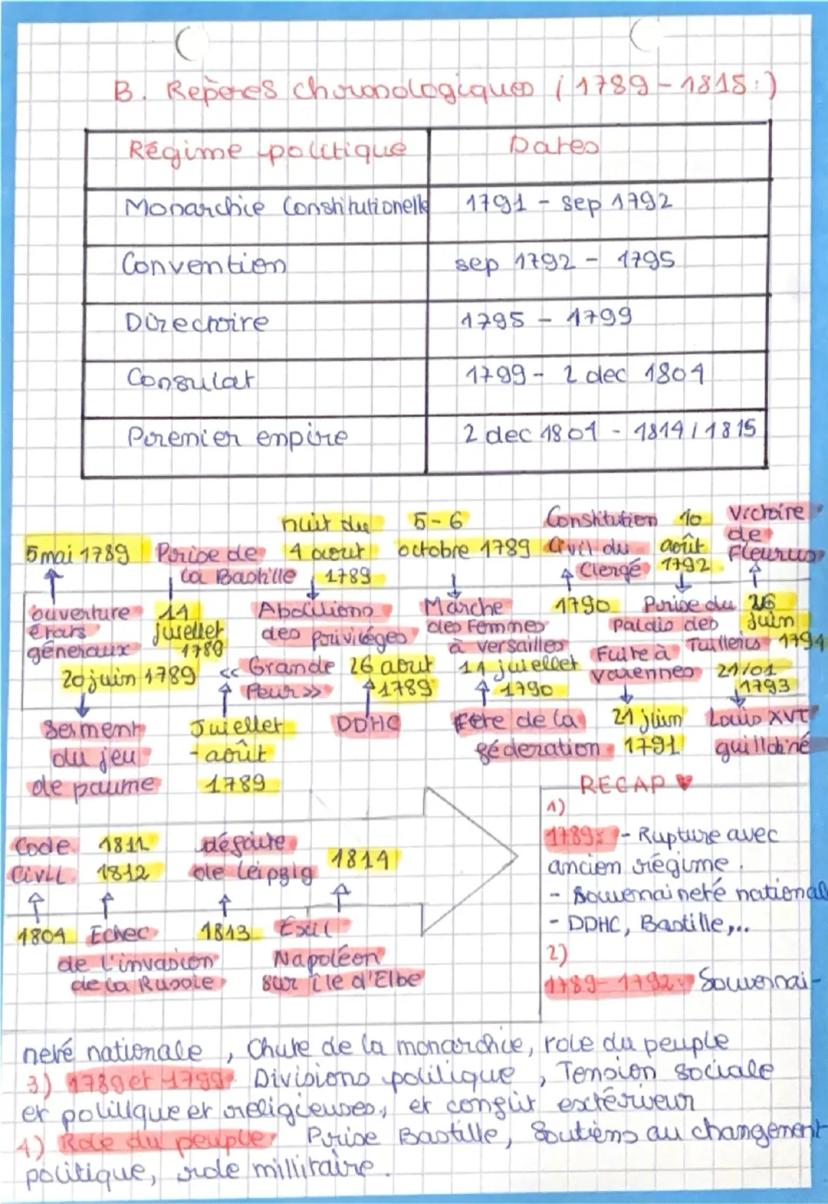 B. Repères chronologiques (1789-1815:)
Régime politique Dates
Monarchie Constitutionelle 1791 - sep 1792
Convention sep 1792 - 1795
Directoire 1795 - 1799
Consulat 1799 - 2 dec 1804
Premier empire 2 dec 1804 - 1814/1815
5 mai 1789
ouverture
états
généraux
20 juin 1789
Serment
du jeu
de paume
Prise de
la Bastille
14
juillet
1789
<< Grande
Peur >>
Juillet
- août
1789
nuit du
4 aout
1789
Abolitions
des privilèges
26 aout
1789
DDHC
5-6
octobre 1789
Marche
des Femmes
à Versailles
14 juillet
1790
Fête de la
fédération
Constitution
Civil du
Clergé
1790
Fuite à
Varennes
21 juin
1791
10
août
1792
Prise du
palais des
Tuilleries
21/01
1793
Louis XVI
guillotiné
Victoire
de
Fleurus
26
Juin
1794
Code
Civil
1804
1811
1812
Echec
de l'invasion
de la Russie
défaite
de Leipzig
1813
1814
Exil
Napoléon
sur île d'Elbe
RECAP ♥
1)
1789: - Rupture avec
ancien régime.
- Souveraineté national
- DDHC, Bastille,...
2)
1789-1792: Souverai-
neté nationale, Chute de la monarchie, role du peuple
3) 1789 et 1799 Divisions politique, Tension sociale
et politique et religieuses, et conflit extérieur
4) Role du peuple: Prise Bastille, Soutiens au changement
politique, role millitaire.